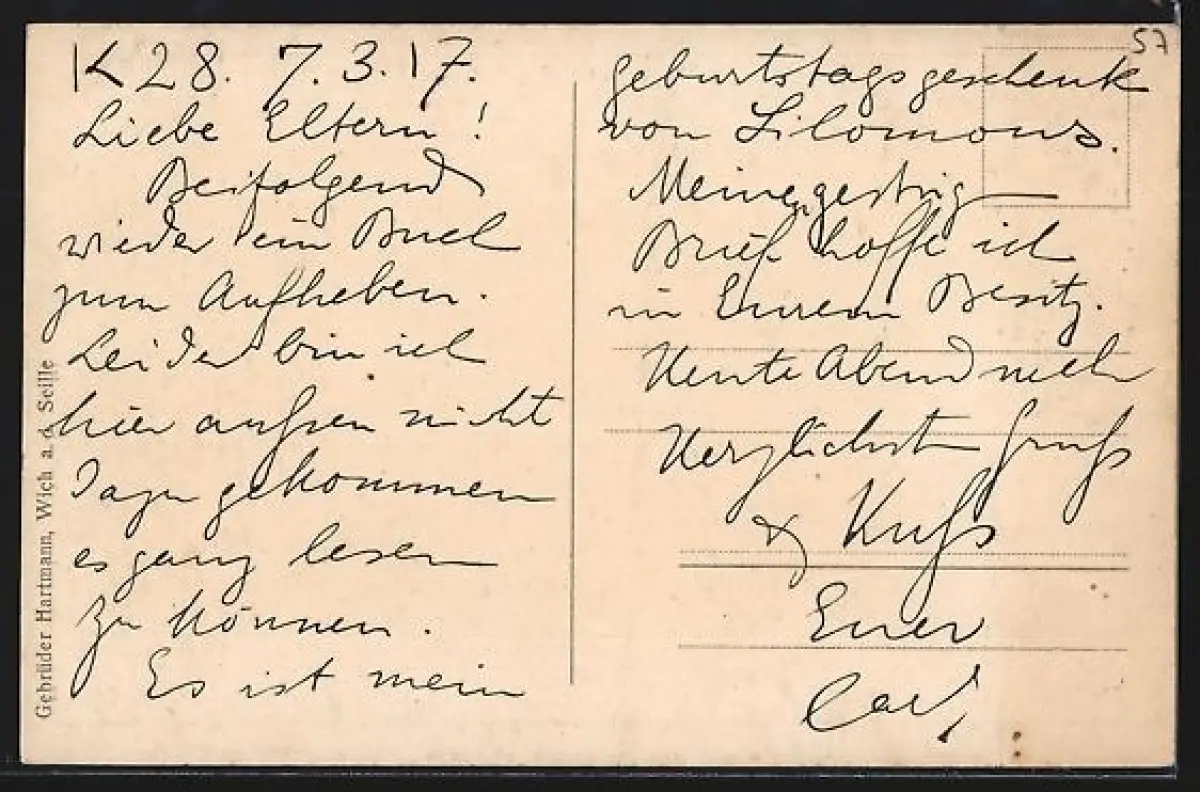 K 28. 7.3.17.
Liebe Eltern!
Beifolgend
wieder ein Buch
zum Aufheben.
Leider bin ich
hier aussen nicht
dazu gekommen
es ganz lesen
zu können.
Es ist mein
57
Geburtstagsgeschenk
von Silomons.
Meinen gestrig
Brief hoffe ich
in Eurem Besitz.
Heute Abend mehr
Herzlichsten Gruss
& Kuss
Euer
Carl
Gebrüder Hartmann, Wich a. d. Seille